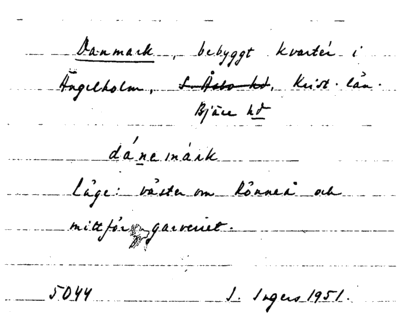 Danmark, bebyggt kvarter i
Ängelholm, S. Åsbo hd, Krist. län.
Bjäre hd
dánemárk
läge: väster om Rönneå och
mittför garveriet.
5044 I. Ingers 1951.